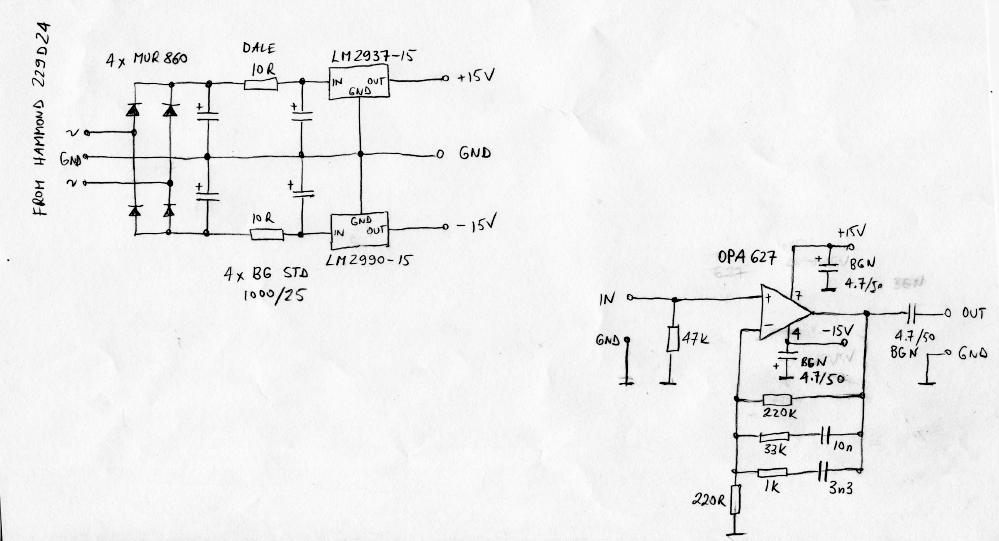 FROM HAMMOND 229D24
4x MUR860
DALE
10R
LM2937-15
IN OUT
GND
+15V
~
GND
~
GND
+
+
+
+
10R
GND
IN OUT
LM2990-15
-15V
4x BG STD
1000/25
OPA627
+15V
+
BGN
4.7/50
IN
+
7
-
4
-15V
GND
47K
+
BGN
4.7/50
OUT
4.7/50
BGN
GND
220K
33K
10n
1K
3n3
220R